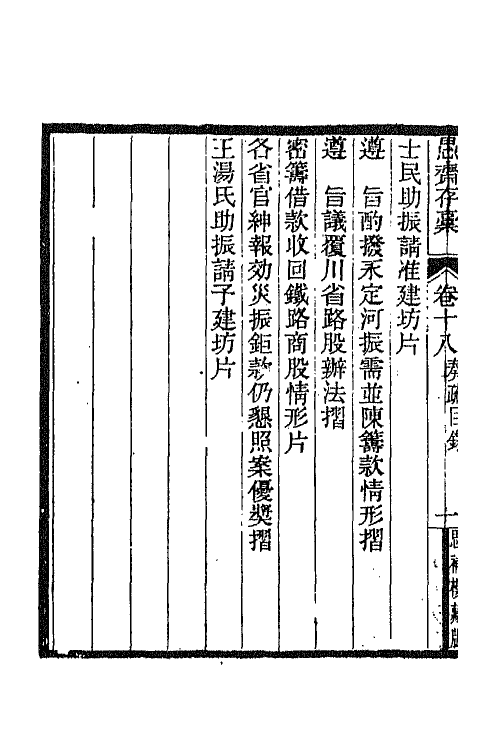 愚齋存稾 卷十八 奏疏目錄 一 思補樓藏版
士民助振請准建坊片
遵 旨酌撥永定河振需並陳籌款情形摺
遵 旨議覆川省路股辦法摺
密籌借款收回鐵路商股情形片
各省官紳報効災振鉅款仍懇照案優奬摺
王湯氏助振請予建坊片